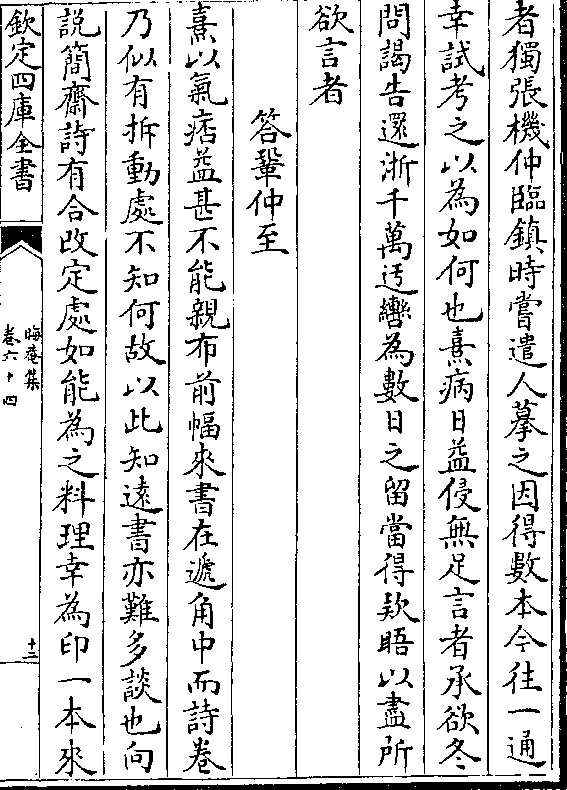 者獨張機仲臨鎮時嘗遣人摹之因得數本今往一通
幸試考之以為如何也熹病日益侵無足言者承欲冬
問謁告還浙千萬迂轡為數日之留當得欵晤以盡所
欲言者
答鞏仲至
熹以氣痞益甚不能親布前幅來書在遞角中而詩卷
乃似有拆動處不知何故以此知遠書亦難多談也向
說簡齋詩有合改定處如能為之料理幸為印一本來
欽定四庫全書
晦庵集
卷六十四
十二